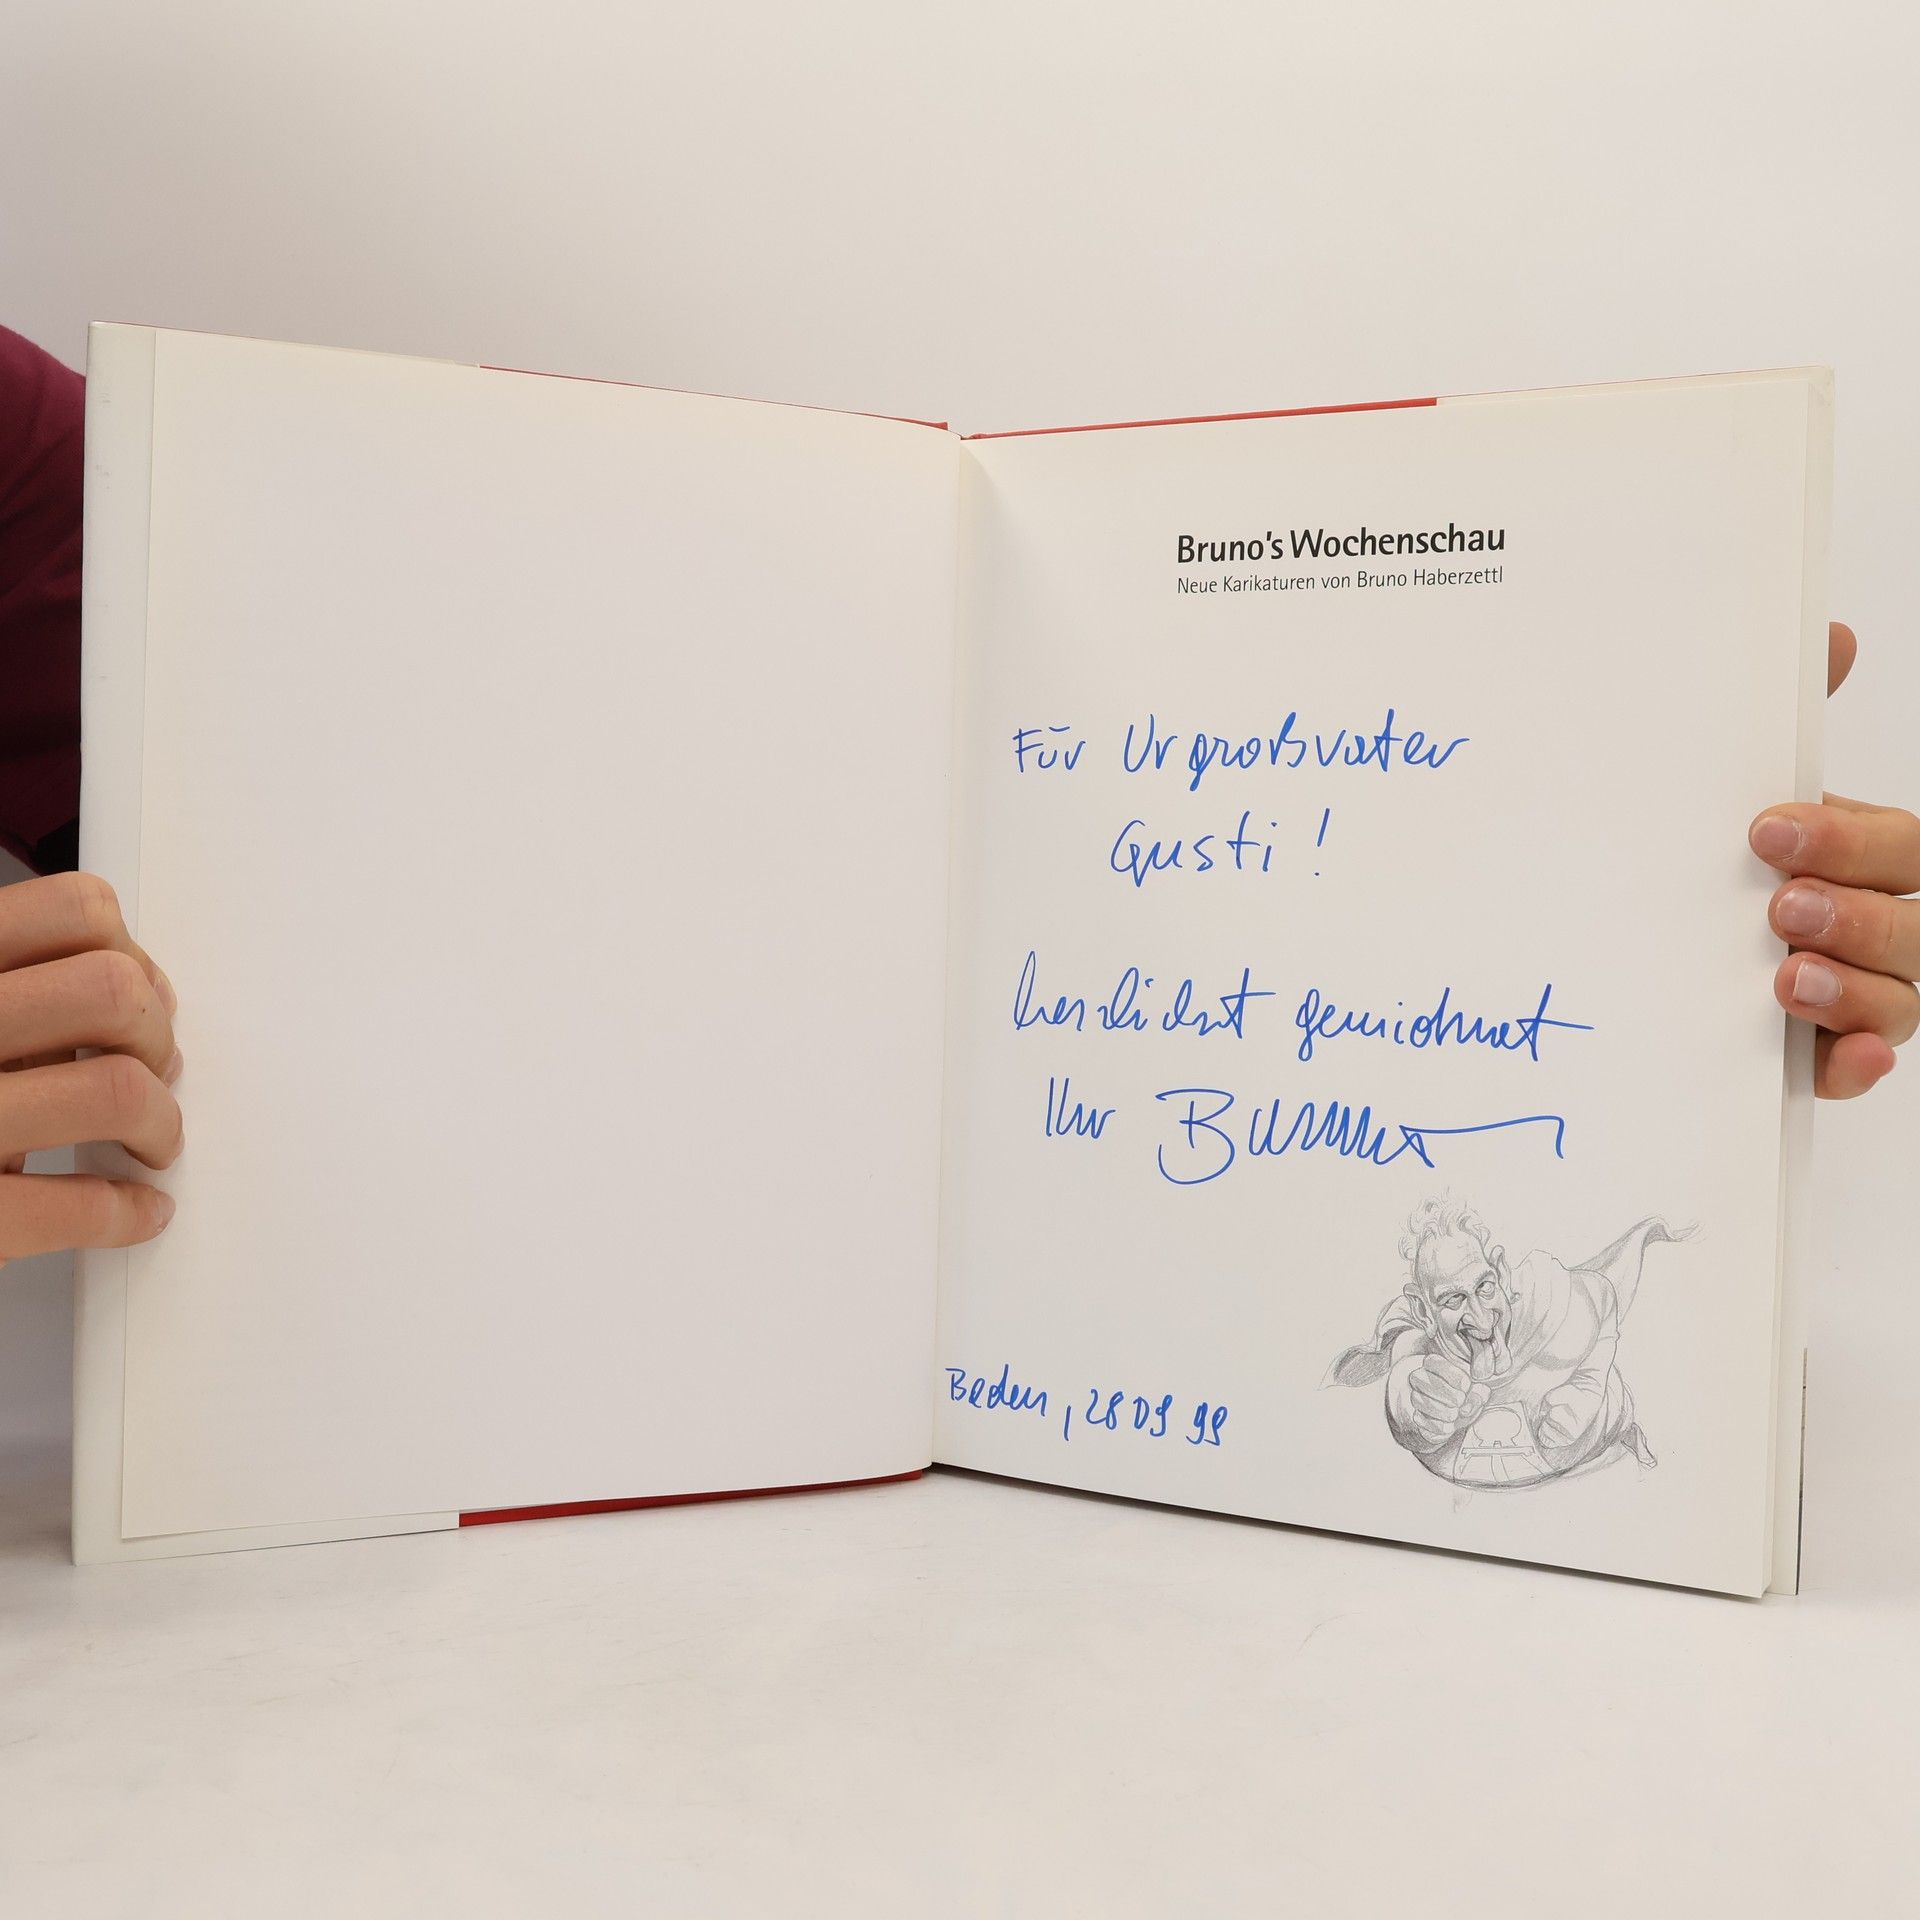 Bruno's Wochenschau
Neue Karikaturen von Bruno Haberzettl
Für Urgroßvater
Gusti !
herzlichst gezeichnet
Ihr Bruno
Baden, 28 09 99